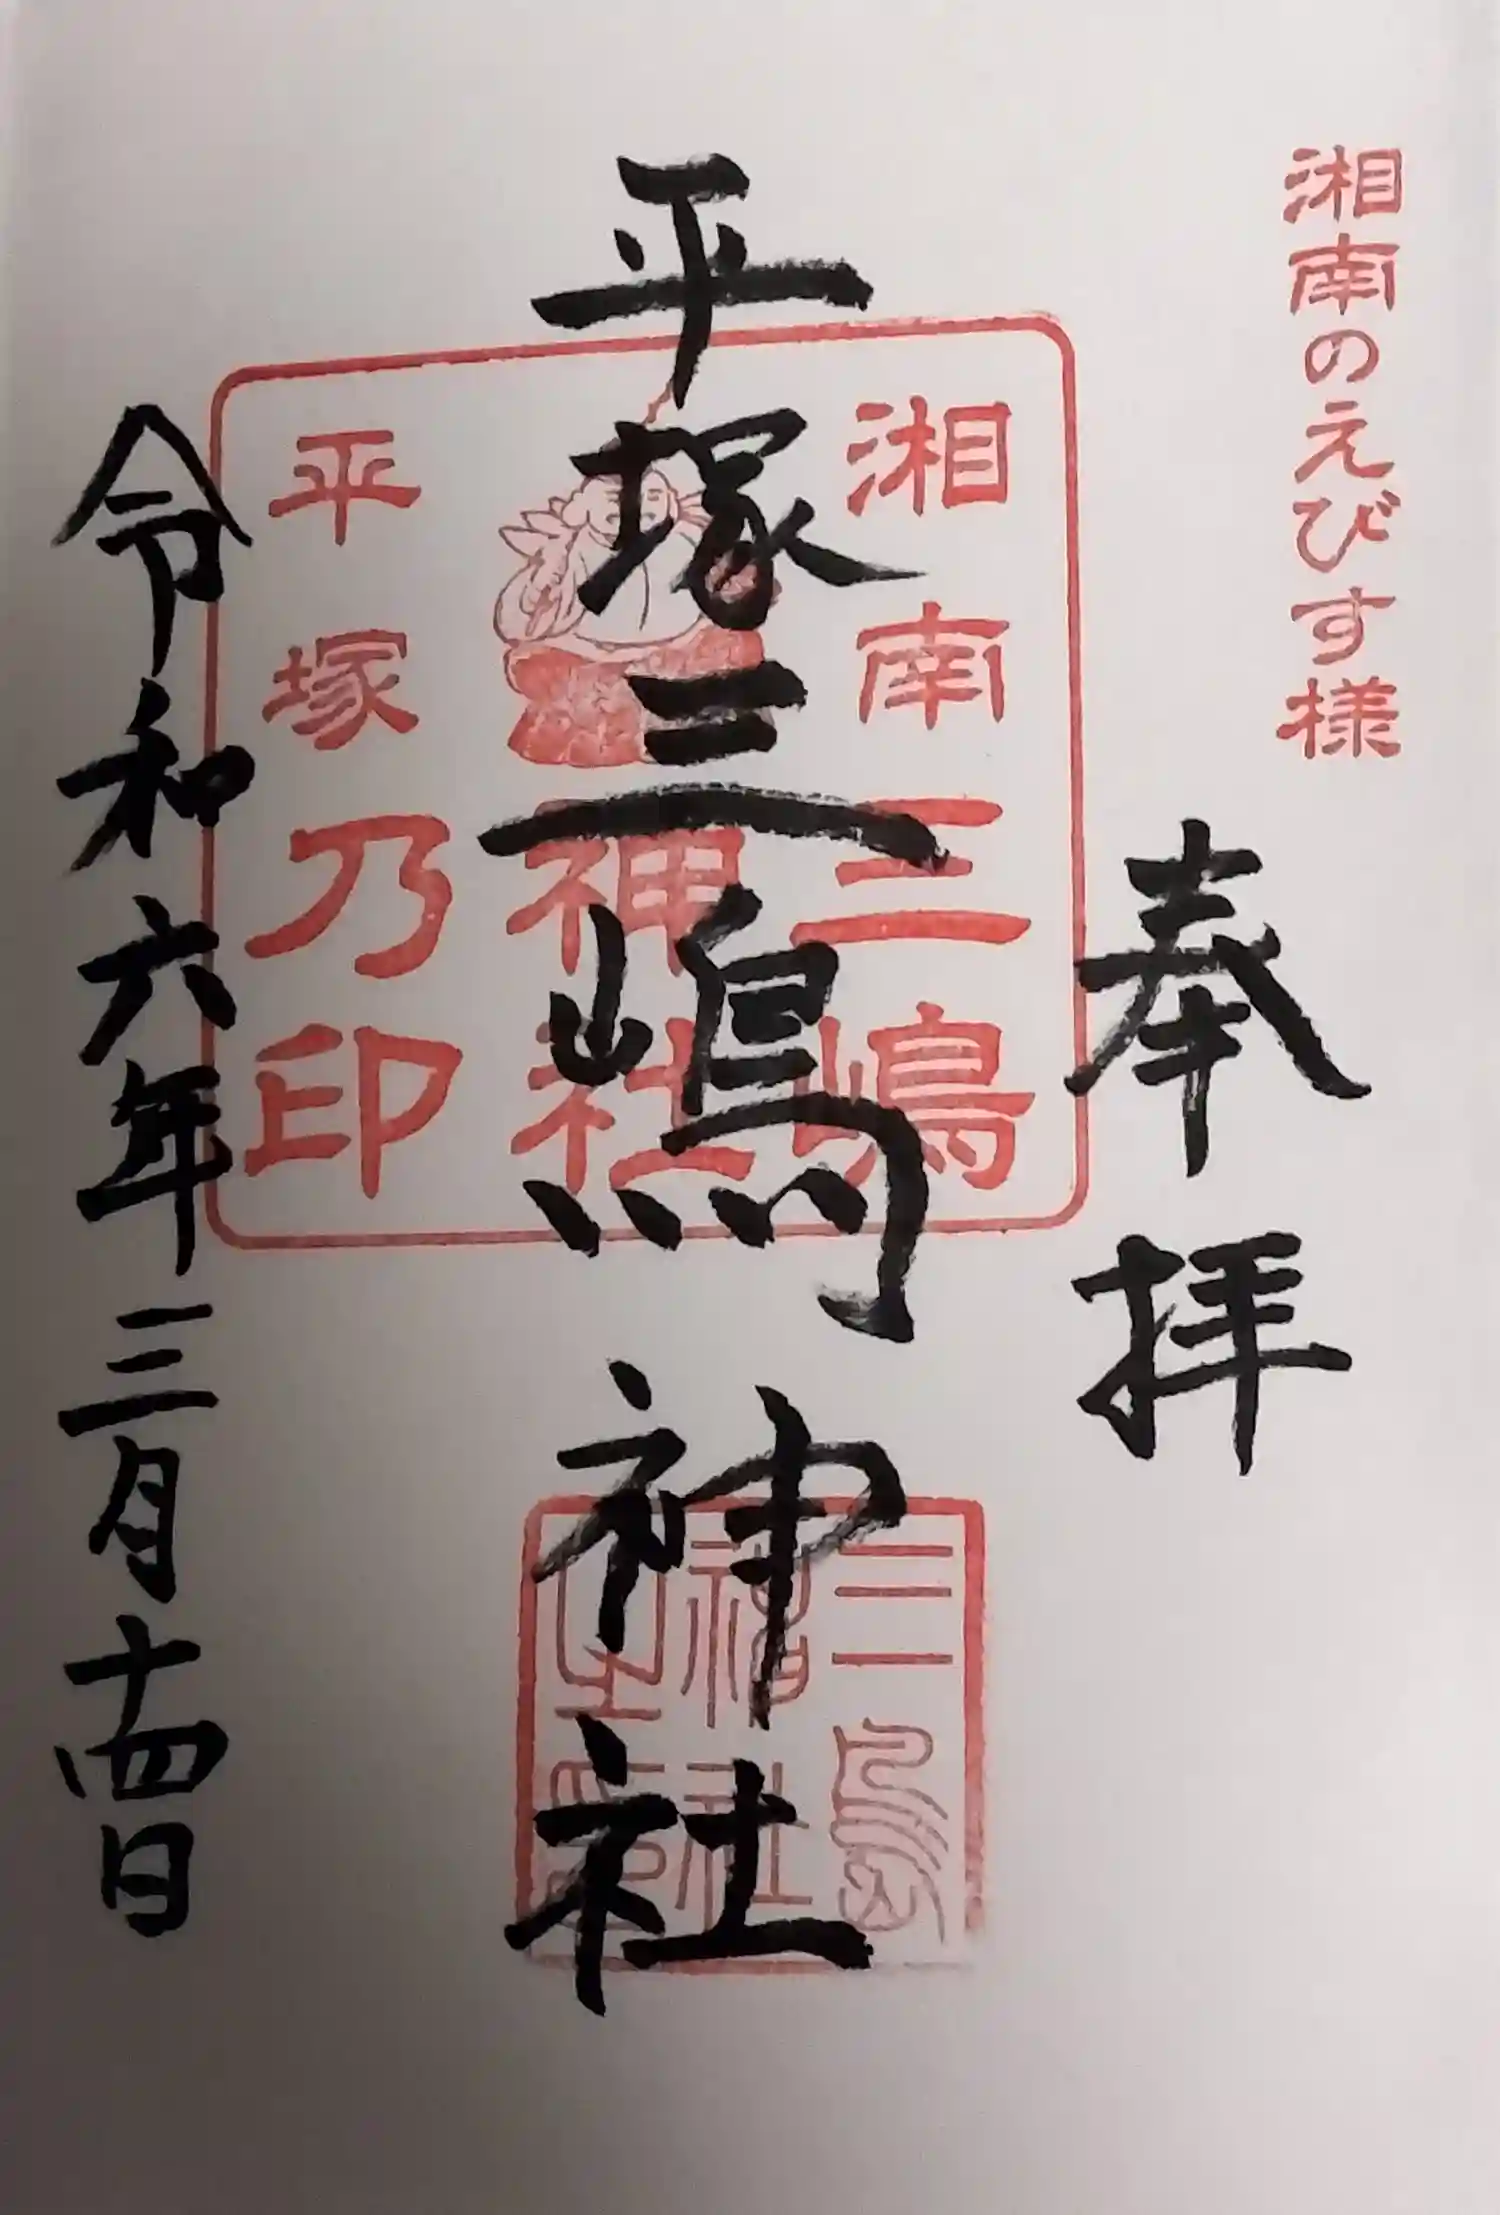 湘南のえびす様
奉拝
平塚三嶋神社
令和六年三月十四日
湘南三嶋
神社
平塚乃印
三嶋
神社
之印